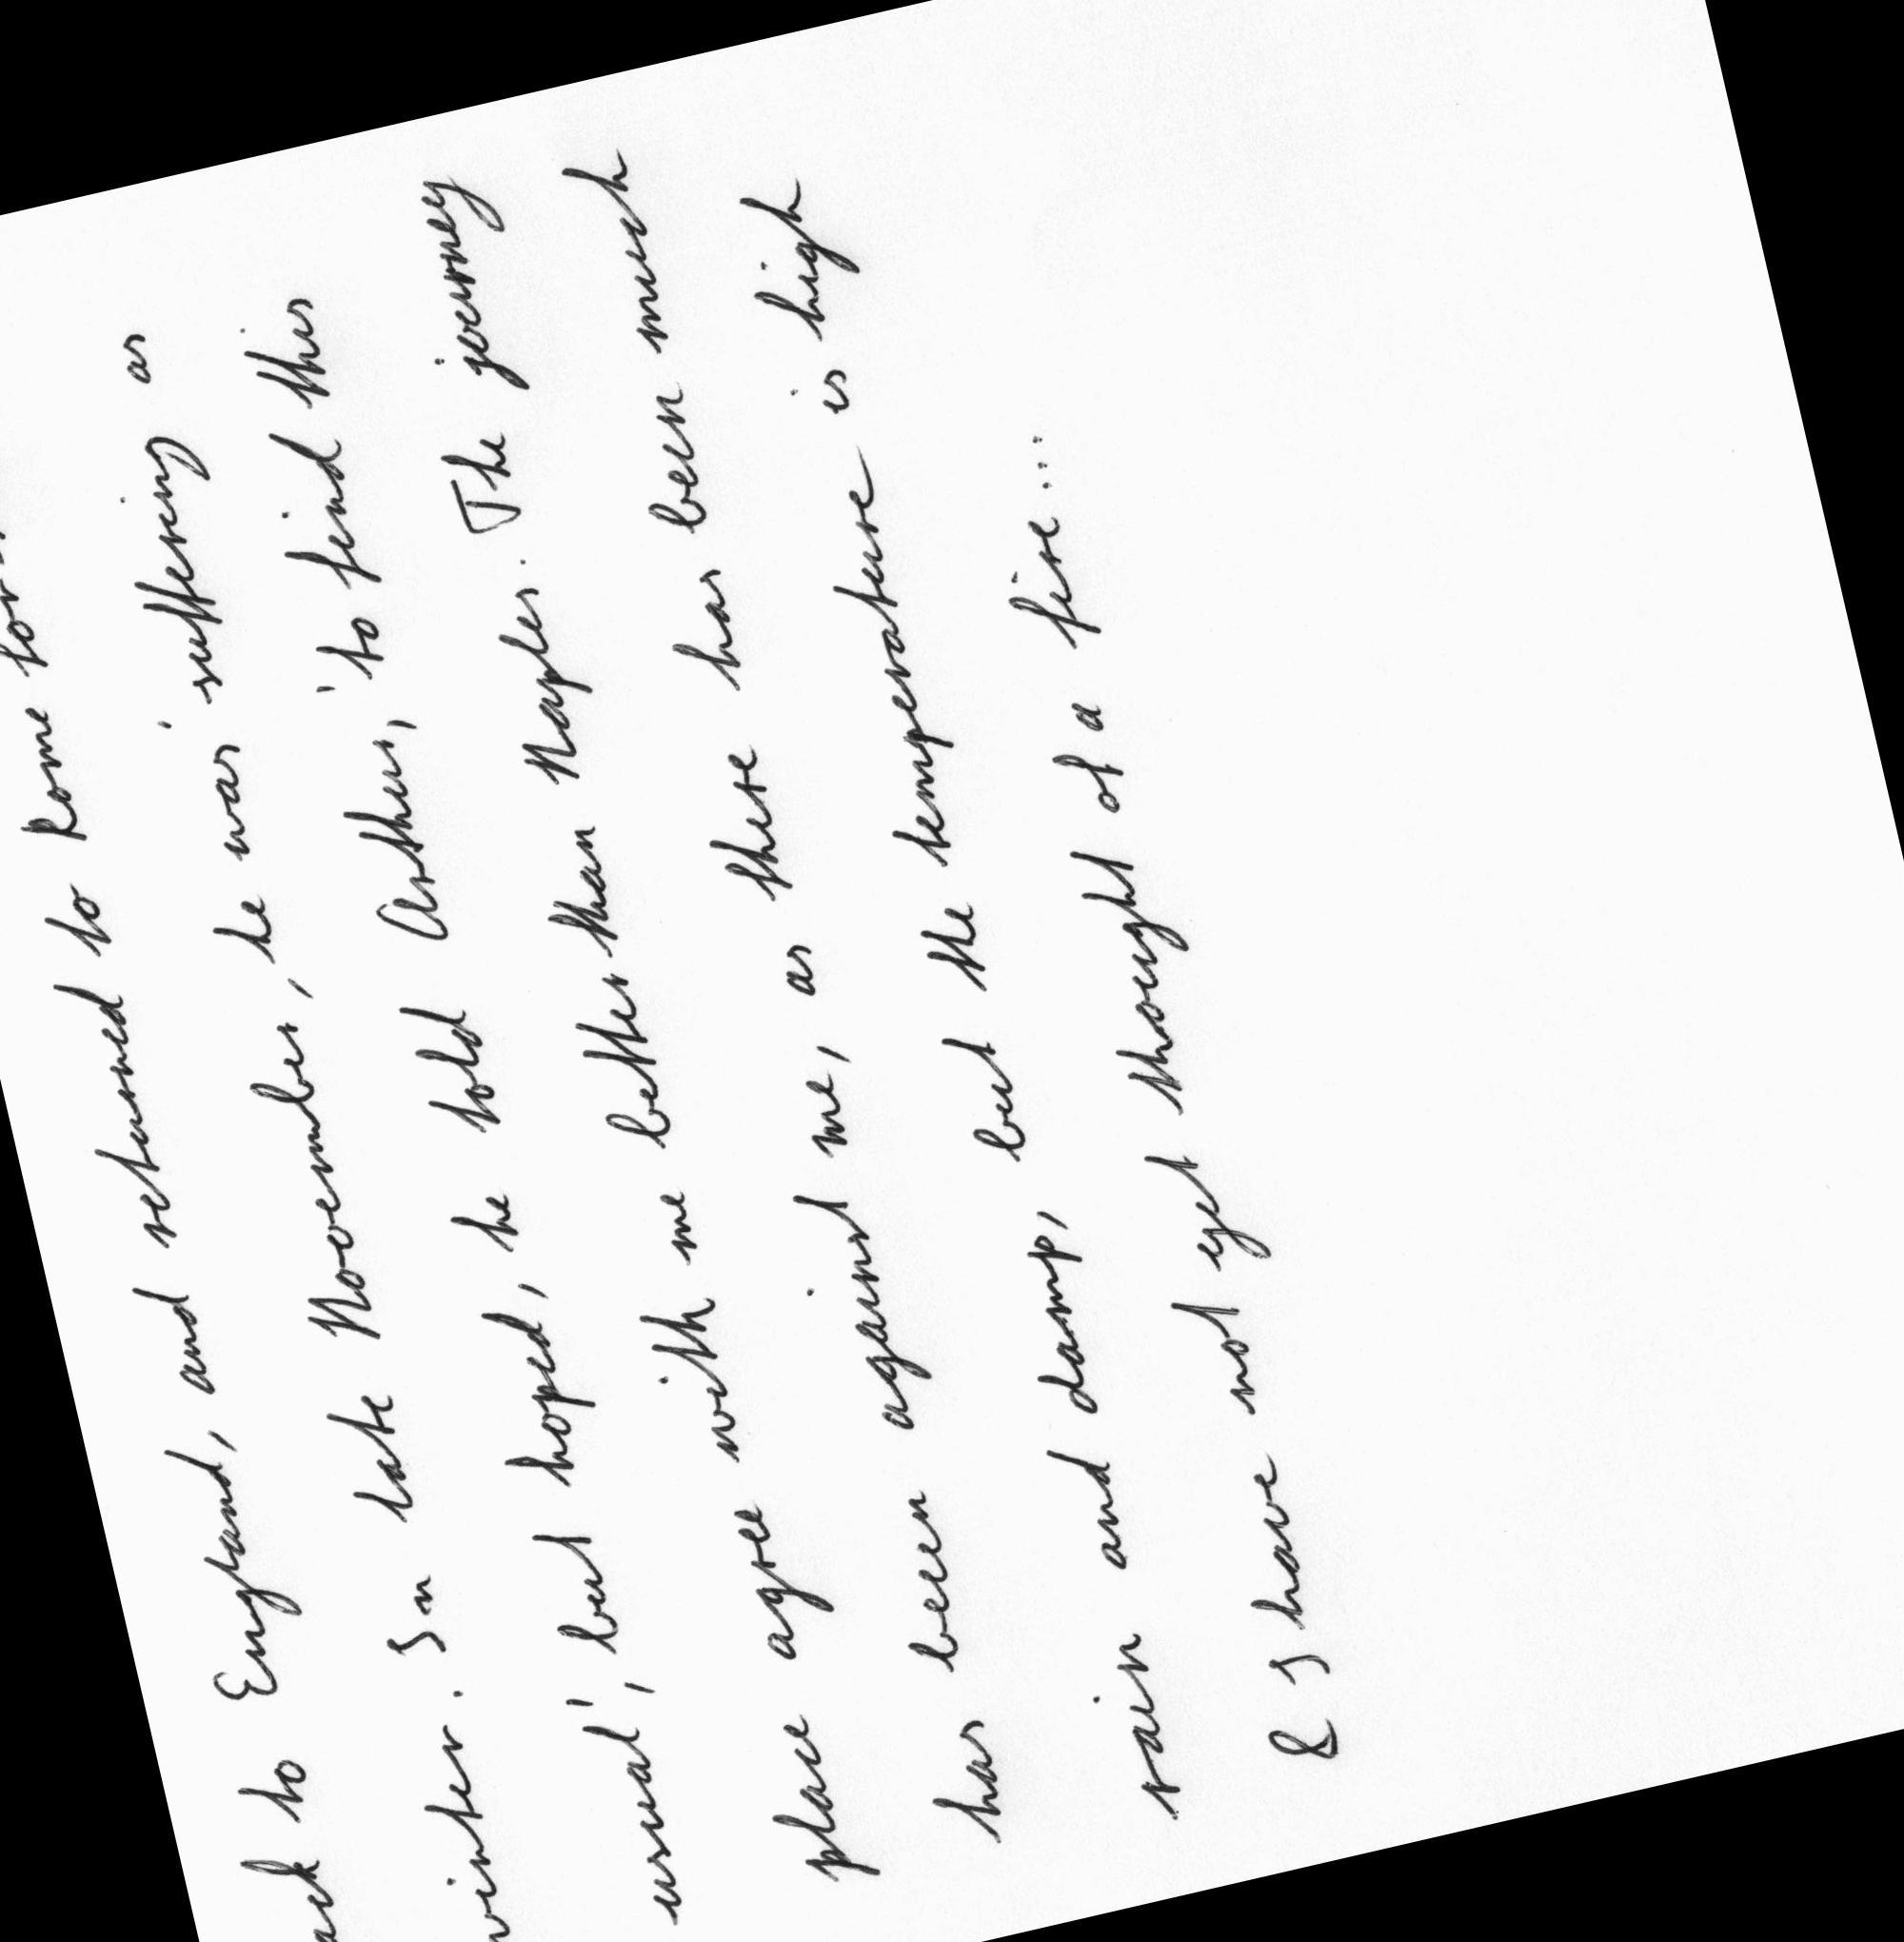 to England, and returned to Rome for
winter. In late November, he was 'suffering as
usual', but hoped, he told Arthur, 'to find this
place agree with me better than Naples. The journey
has been against me, as there has been much
rain and damp, but the temperature is high
& I have not yet thought of a fire...